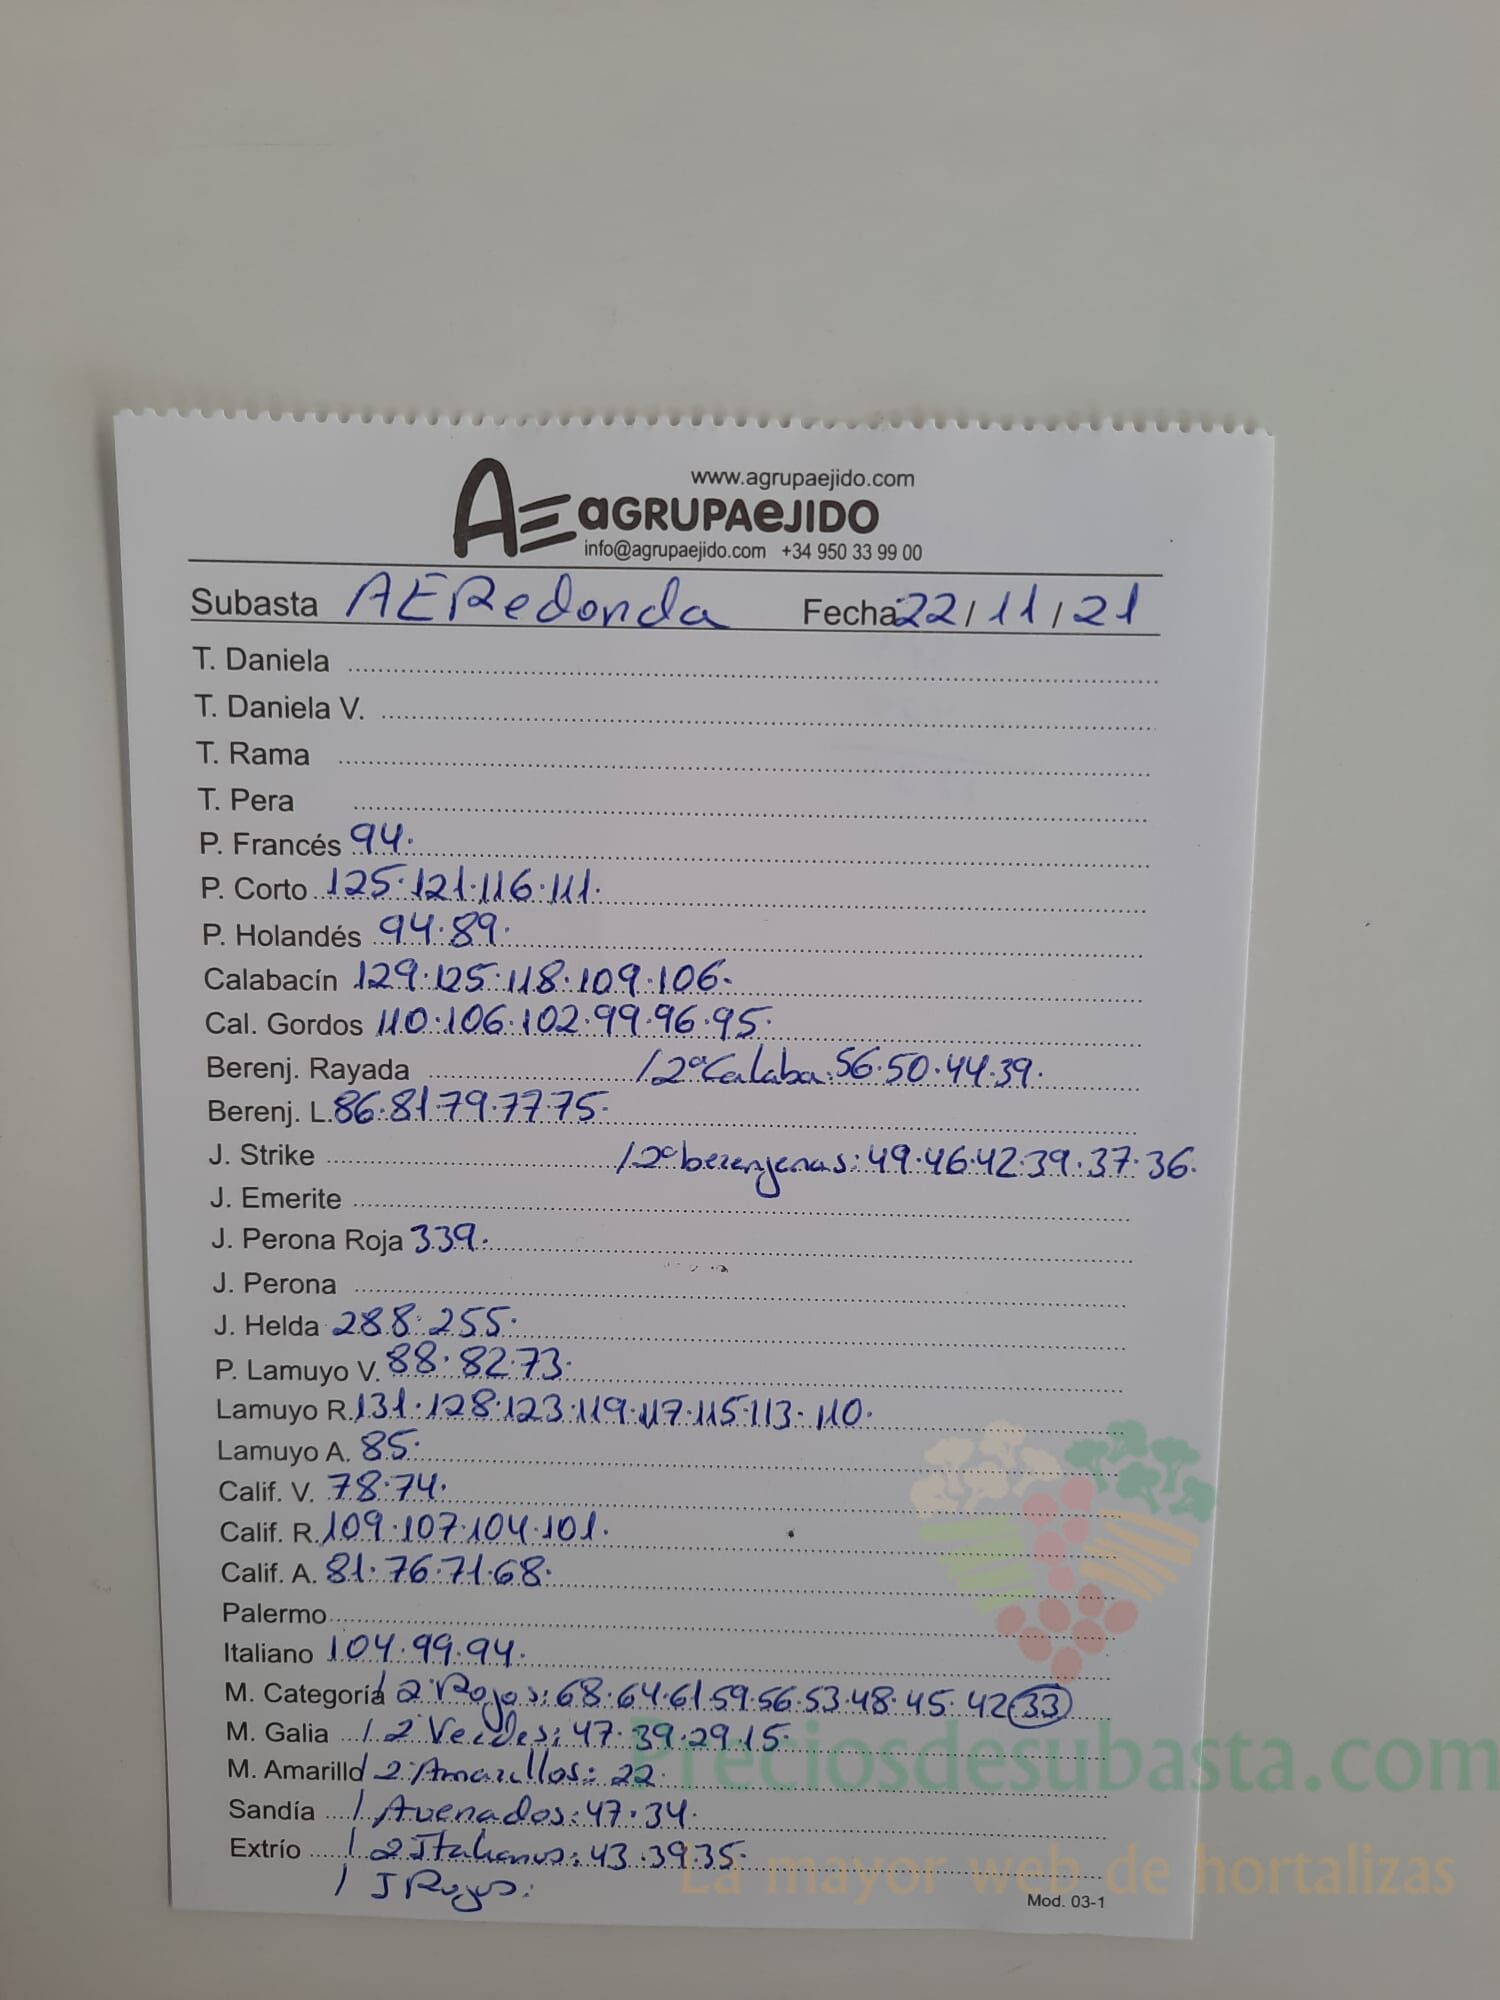 www.agrupaejido.com
AE aGRUPAeJIDO
info@agrupaejido.com +34 950 33 99 00
Subasta AERedonda Fecha 22/11/21
T. Daniela
T. Daniela V.
T. Rama
T. Pera
P. Francés 94.
P. Corto 125.121.116.111.
P. Holandés 94.89.
Calabacín 129.125.118.109.106.
Cal. Gordos 110.106.102.99.96.95.
Berenj. Rayada /2ªCalaba:56.50.44.39.
Berenj. L. 86.81.79.77.75.
J. Strike /2ªberenjenas:49.46.42.39.37.36.
J. Emerite
J. Perona Roja 339.
J. Perona
J. Helda 288.255.
P. Lamuyo V. 88.82.73.
Lamuyo R. 131.128.123.119.117.115.113.110.
Lamuyo A. 85.
Calif. V. 78.74.
Calif. R. 109.107.104.101.
Calif. A. 81.76.71.68.
Palermo
Italiano 104.99.94.
M. Categoría / 2 Rojos:68.64.61.59.56.53.48.45.42 33
M. Galia / 2 Verdes:47.39.29.15.
M. Amarillo / 2 Amarillos:22.
Sandía / Avenados:47.34.
Extrío / 2 Italianos:43.39.35.
/ J Rojos:
Mod. 03-1
Preciosdesubasta.com
La mayor web de hortalizas